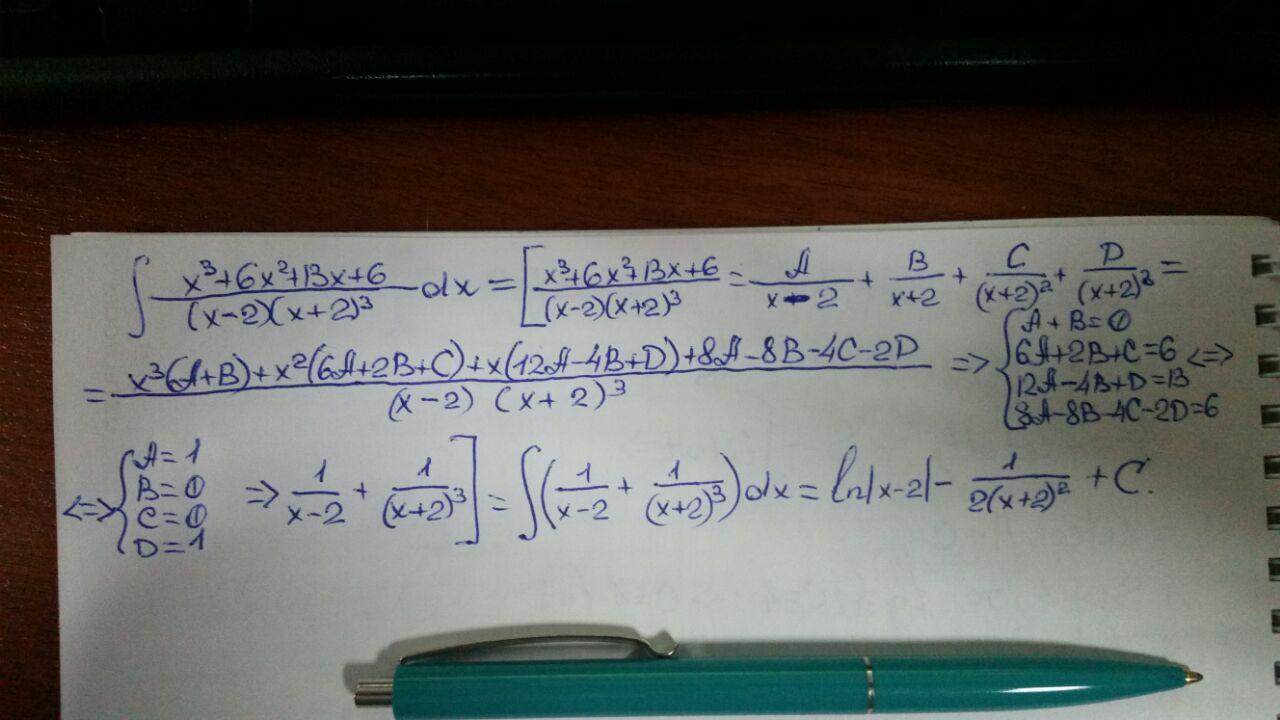 ∫ (x³+6x²+13x+6)/((x-2)(x+2)³) dx = [ (x³+6x²+13x+6)/((x-2)(x+2)³) = A/(x-2) + B/(x+2) + C/(x+2)² + D/(x+2)³ =
= (x³(A+B)+x²(6A+2B+C)+x(12A-4B+D)+8A-8B-4C-2D)/((x-2)(x+2)³) => { A+B=1; 6A+2B+C=6; 12A-4B+D=13; 8A-8B-4C-2D=6 <=>
<=> { A=1; B=0; C=0; D=1 => 1/(x-2) + 1/(x+2)³ ] = ∫(1/(x-2) + 1/(x+2)³)dx = ln|x-2| - 1/(2(x+2)²) + C.